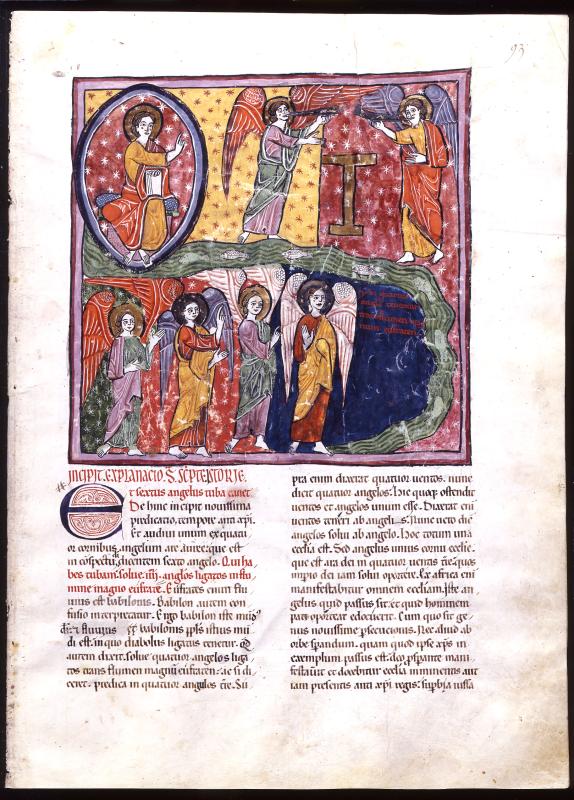 93
INCIPIT. EXPLANACIO. S. SCPTE ISTORIE.
Et sextus angelus tuba canet.
De hinc incipit novissima
predicatio. tempore anti xpi.
Et audivi unum ex quatu
or cornibus angelum
in conspectu dicentem sexto angelo. Qui ha
bes tubam. solve. iiij. anglos ligatos in flu
mine magno eufrate. Eufrates enim flu
vius est babilonis. Babilon autem con
fusio interpretatur. Ergo babilon iste mūd
et fluvius babilonis ppls istius mū
di est. in quo diabolus ligatus tenetur. Qd
autem dixit. solve quatuor angelos liga
tos trans flumen magnū eufraten. ac si di
ceret. predica in quatuor angulos tre. Su
pra enim dixerat quatuor uentos. nunc
dicit quatuor angelos. Hic quoqp ostendit
uentos et angelos unum esse. Dixerat eni
uentos teneri ab angelis. Nunc uero dic
angelos solui ab angelo. Hoc totum una
ecclia est. Sed angelus unius cornu ecclie.
que est ara dei in quatuor uentis tre. quos
inpio dei iam solui oportere. Ex africa eni
manifestabitur omnem eccliam. Iste an
gelus quid passus sit. et quid hominem
pati oporteat edocuerit. Cum quo sit ge
nus nouissime persecucionis. Nec aliud ab
orbe spandum. quam quod ipse
exemplum passus est. deo mani
festavit et docebitur ecclia imminentis aut
iam presentis anti xpi regis. supbia iussa